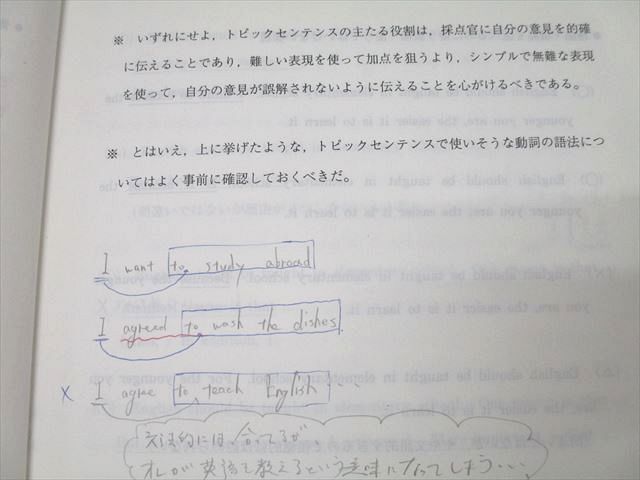 ※ いずれにせよ，トピックセンテンスの主たる役割は，採点官に自分の意見を的確
に伝えることであり，難しい表現を使って加点を狙うより，シンプルで無難な表現
を使って，自分の意見が誤解されないように伝えることを心がけるべきである。
※ とはいえ，上に挙げたような，トピックセンテンスで使いそうな動詞の語法につ
いてはよく事前に確認しておくべきだ。
I want to study abroad
I agreed to wash the dishes.
× I agree to teach English ...
文法的には、合ってるが、
オレが英語を教えるという意味になってしまう...